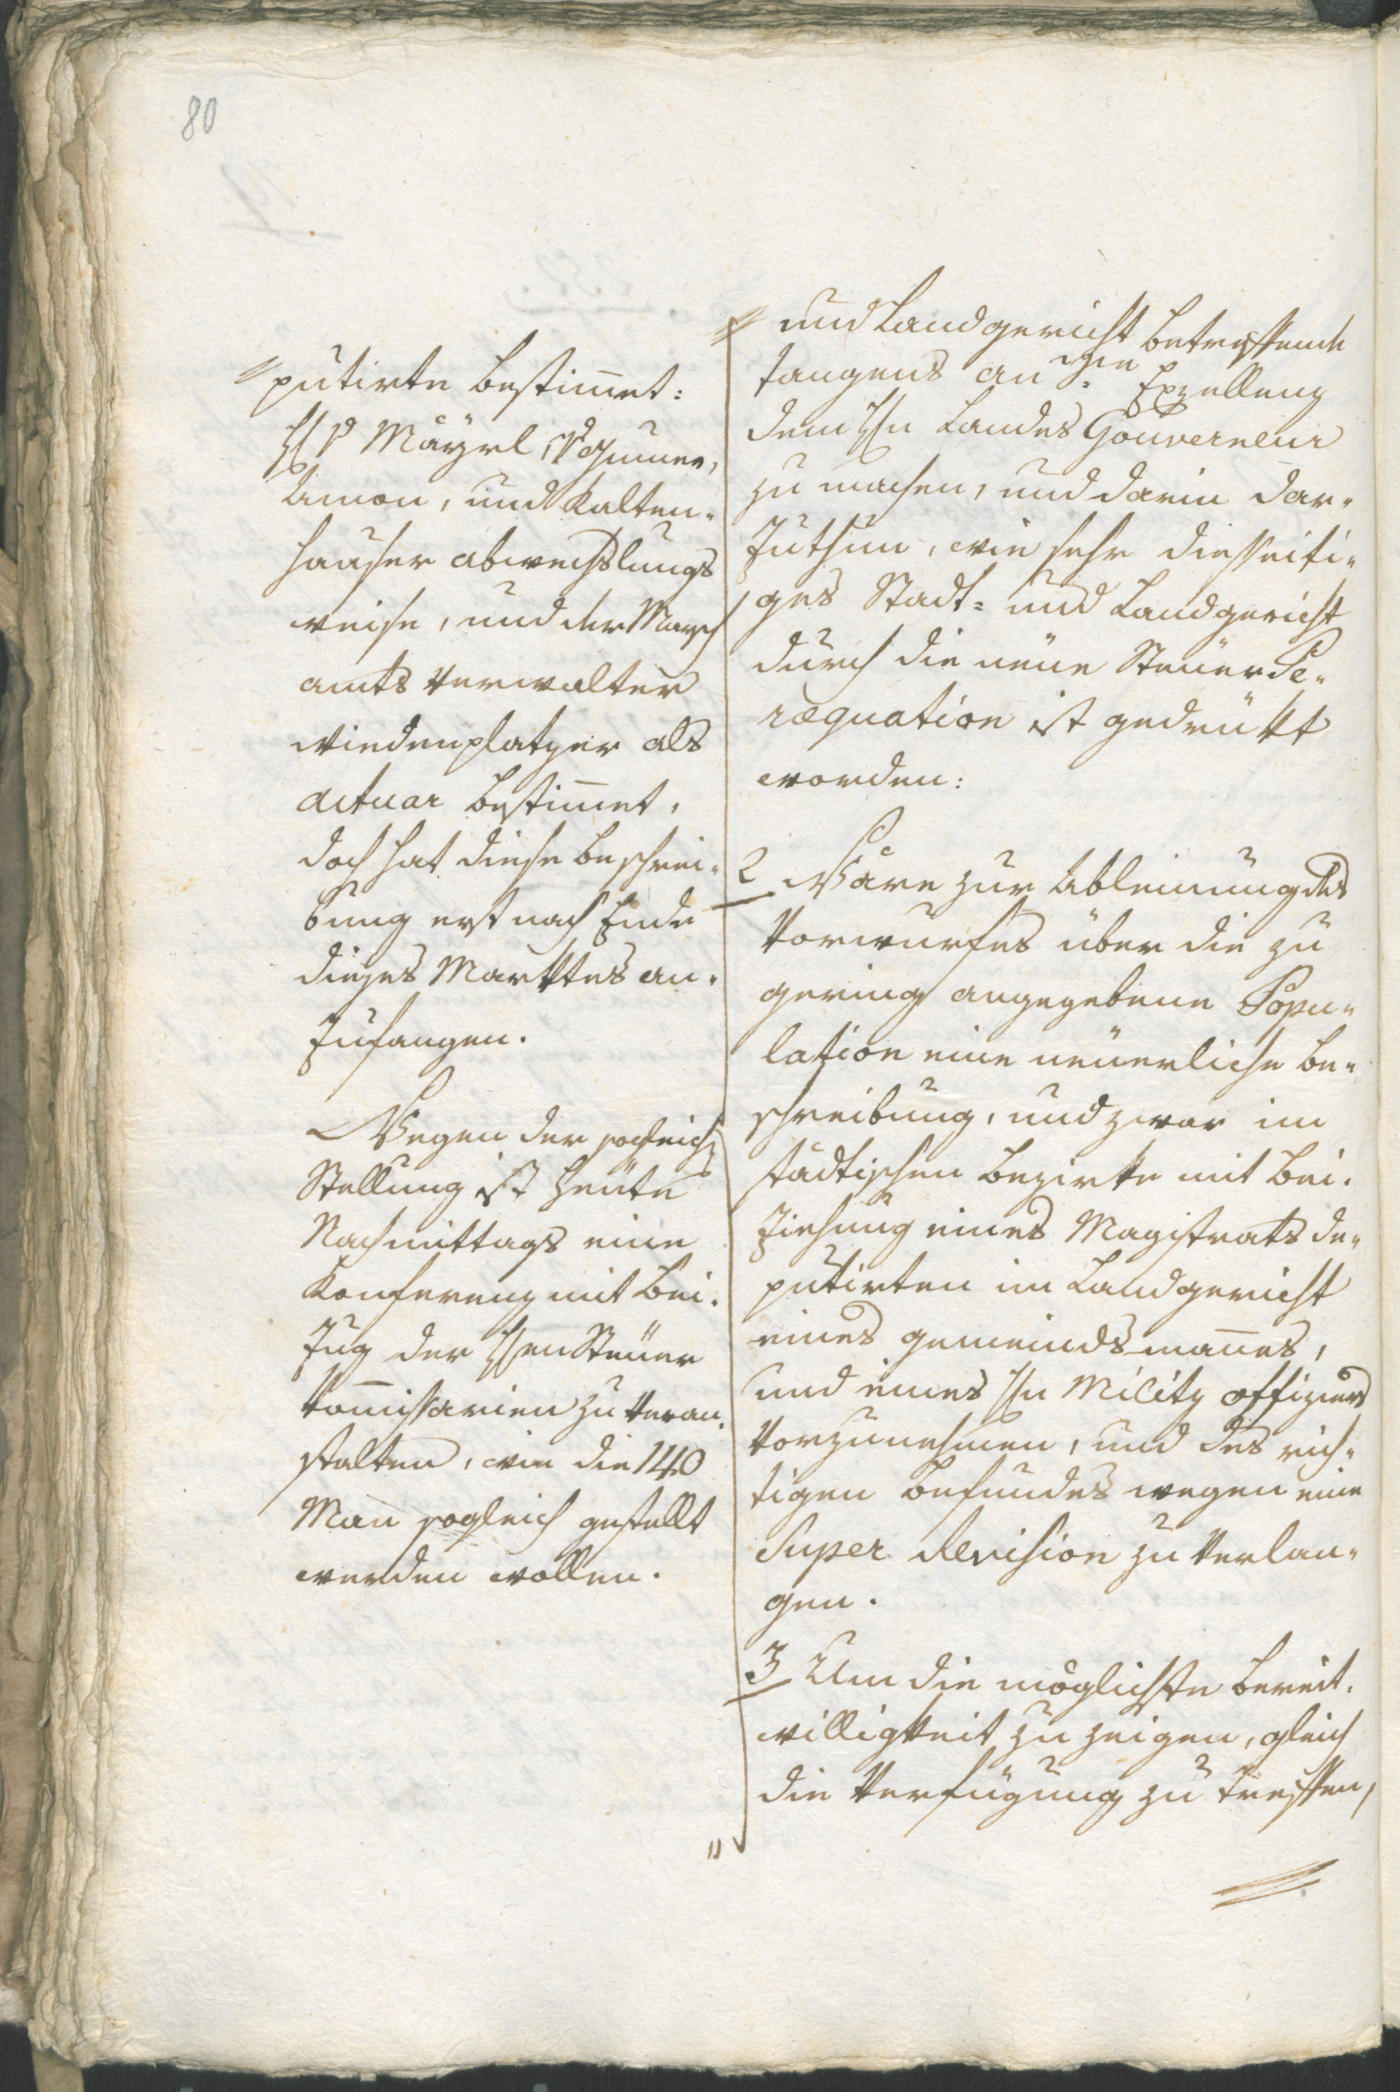 80
putirte bestim̄et:
H P Mäÿrl, v Gumer,
Amon, und Kalten„
hauser abwechslungs
weise, und der Marsch
amts Verwalter
Wiedenplatzer als
Actuar bestim̄et,
doch hat diese Beschrei„
bung erst nach Ende
dieses Marktes an„
zufangen.
Wegen der sogleich
Stellung ist heute
Nachmittags eine
Konferenz mit Bei„
zug der Hen Steuer
Kom̄issarien zu veran„
stalten, wie die 140
Man sogleich gestellt
werden wollen.
und Landgericht betreffende
an Exzellenz
dem Hn Landes Gouverneur
zu machen, und darin dar„
zuthun, wie sehr diesseiti„
ges Stadt= und Landgericht
durch die neue Steuer Pe„
ræquation ist gedrükt
worden:
2 Wäre zur Ableinung des
Vorwurfes über die zu
gering angegebene Popu„
lation eine neuerliche Be„
schreibung, und zwar im
städtischen Bezirke mit Bei„
ziehung eines Magistrats de„
putirten im Landgericht
eines gemeindsman̄es,
und eines Hn Militz offiziers
vorzunehmen, und des rich„
tigen Befundes wegen eine
Super Revision zu verlan„
gen.
3 Um die möglichste Bereit„
willigkeit zu zeigen, gleich
die Verfügung zu treffen,